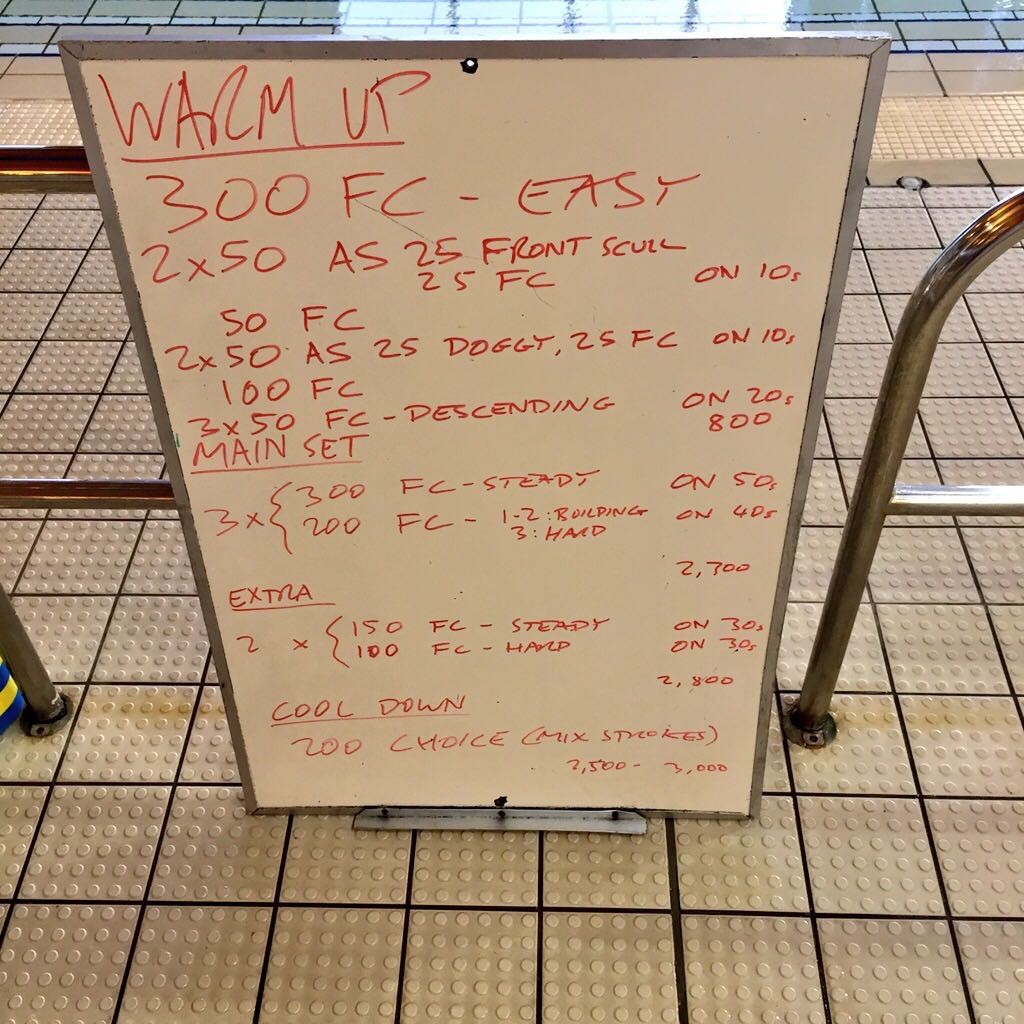 WARM UP
300 FC - EASY
2x50 AS 25 FRONT SCULL
25 FC ON 10s
50 FC
2x50 AS 25 DOGGY, 25 FC ON 10s
100 FC
3x50 FC - DESCENDING ON 20s
800
MAIN SET
3x { 300 FC - STEADY ON 50s
200 FC - 1-2: BUILDING ON 40s
3: HARD
2,300
EXTRA
2 x { 150 FC - STEADY ON 30s
100 FC - HARD ON 30s
2,800
COOL DOWN
200 CHOICE (MIX STROKES)
2,500 - 3,000